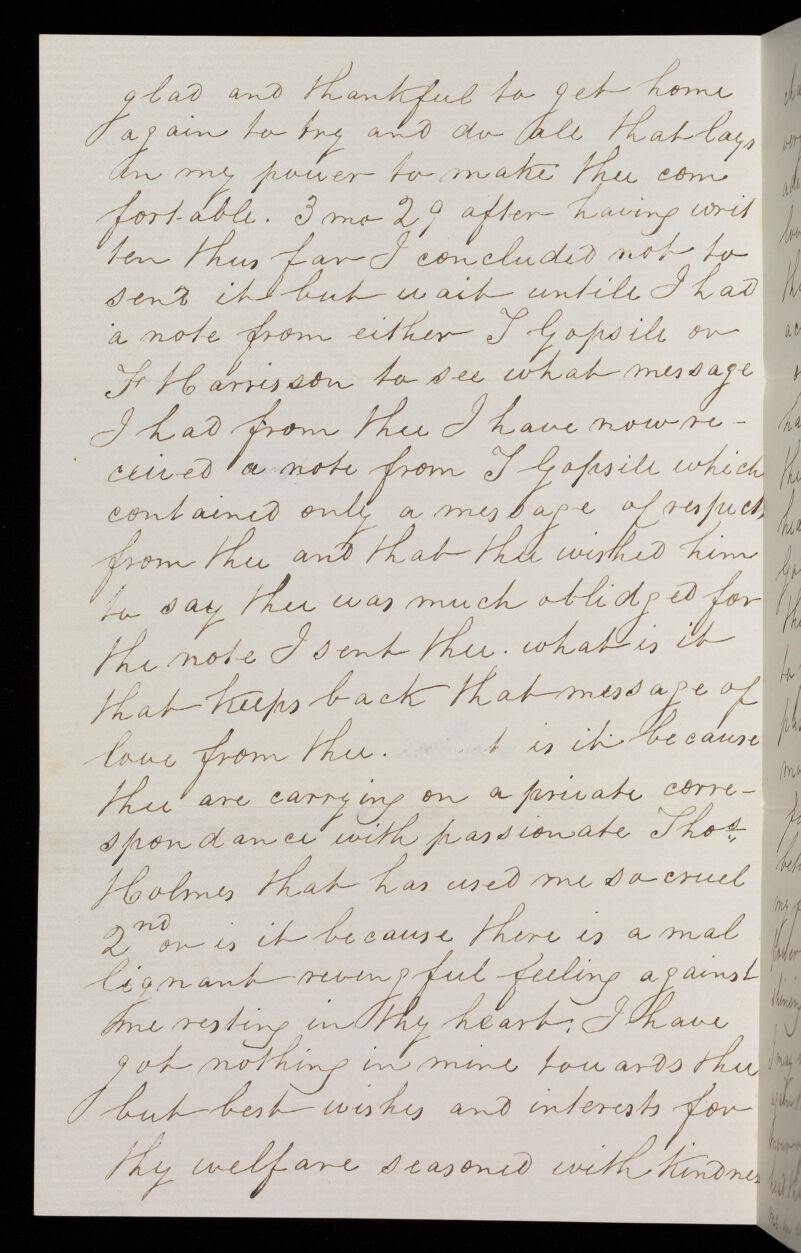 glad and thankful to get home
again to try and do all that lays
in my power to make thee com
fort able. 3 mo 29 after having writ
ten thus far I concluded not to
send it but wait untile I had
a note from either T Gopsill or
F Harrisson to see what message
I had from thee I have now re-
ceived a note from T Gopsill which
contained only a message of respect
from thee and that thee wished him
to say thee was much oblidged for
the note I sent thee. what is it
that keeps back that message of
love from thee. is it because
thee are carrying on a private corre-
spondance with passionate Thos.
Holmes that has used me so cruel
2nd or is it because there is a mal
lignant revengful feeling against
me resting in thy heart. I have
got nothing in mine towards thee
but best wishes and interests for
thy welfare seasoned with kindnes